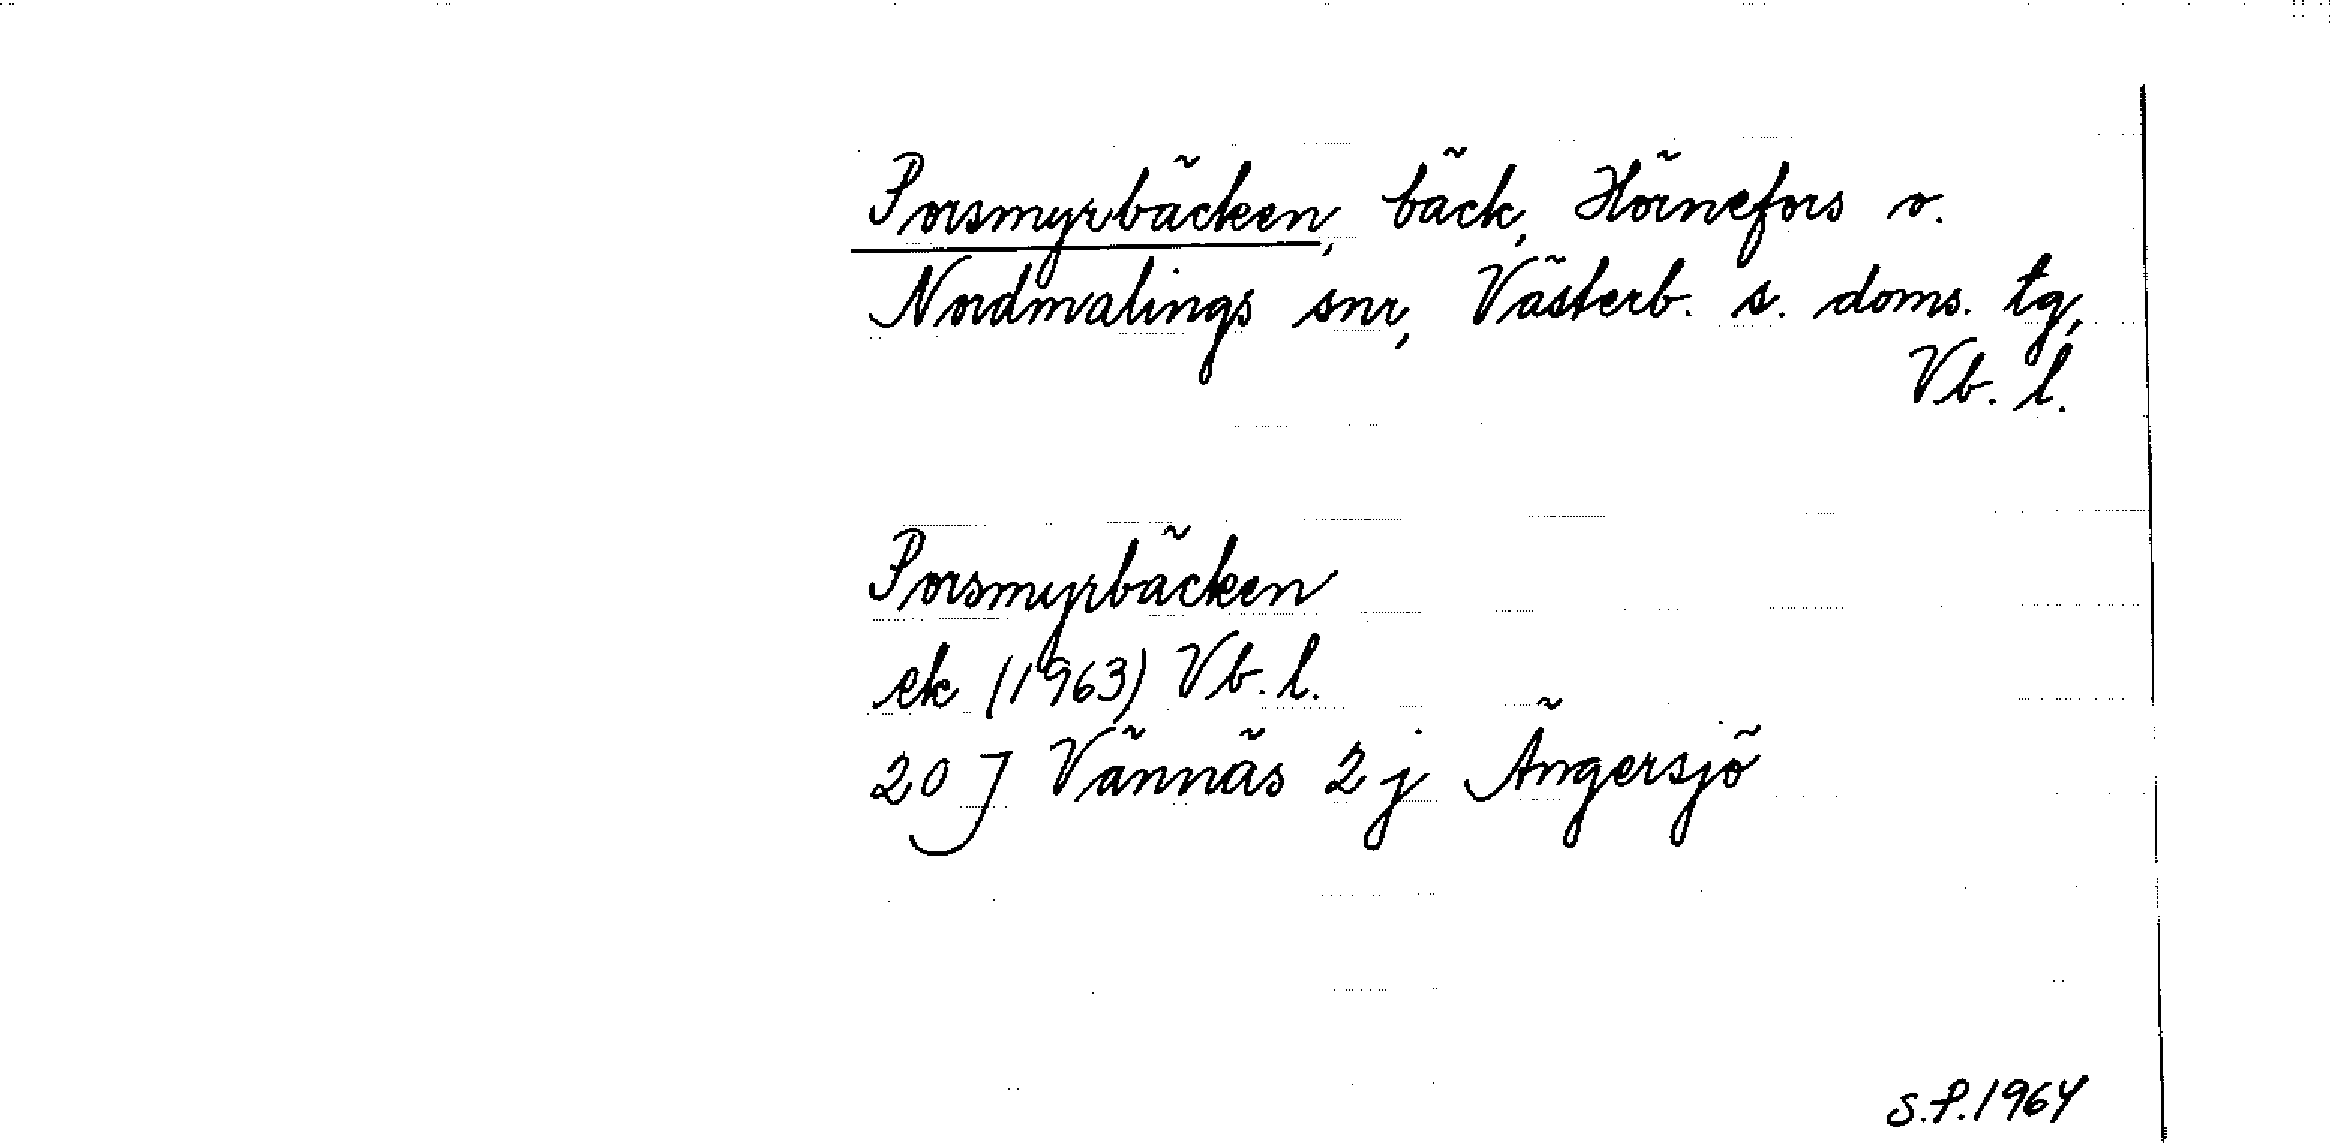 Porsmyrbäcken, bäck, Hörnefors o.
Nordmalings snr, Västerb. s. doms. tg,
Vb. l.
Porsmyrbäcken
ek (1963) Vb. l.
20 J Vännäs 2 j Ängersjö
S.P. 1964